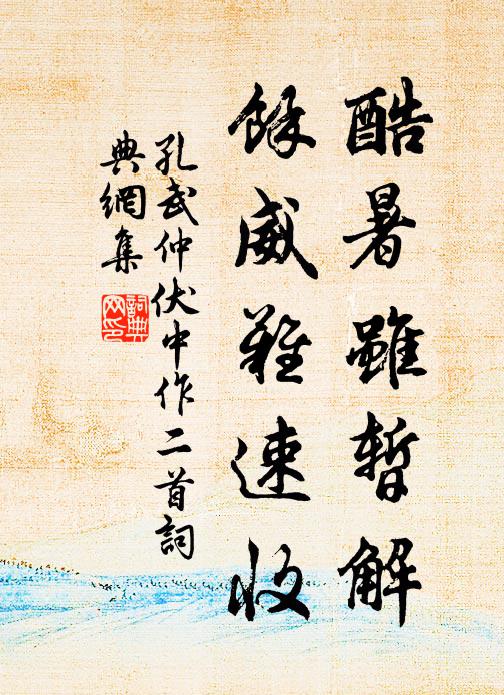 酷暑雖暫解
餘威難速收
孔武仲伏中作二首詞
典網集
詞典
网印